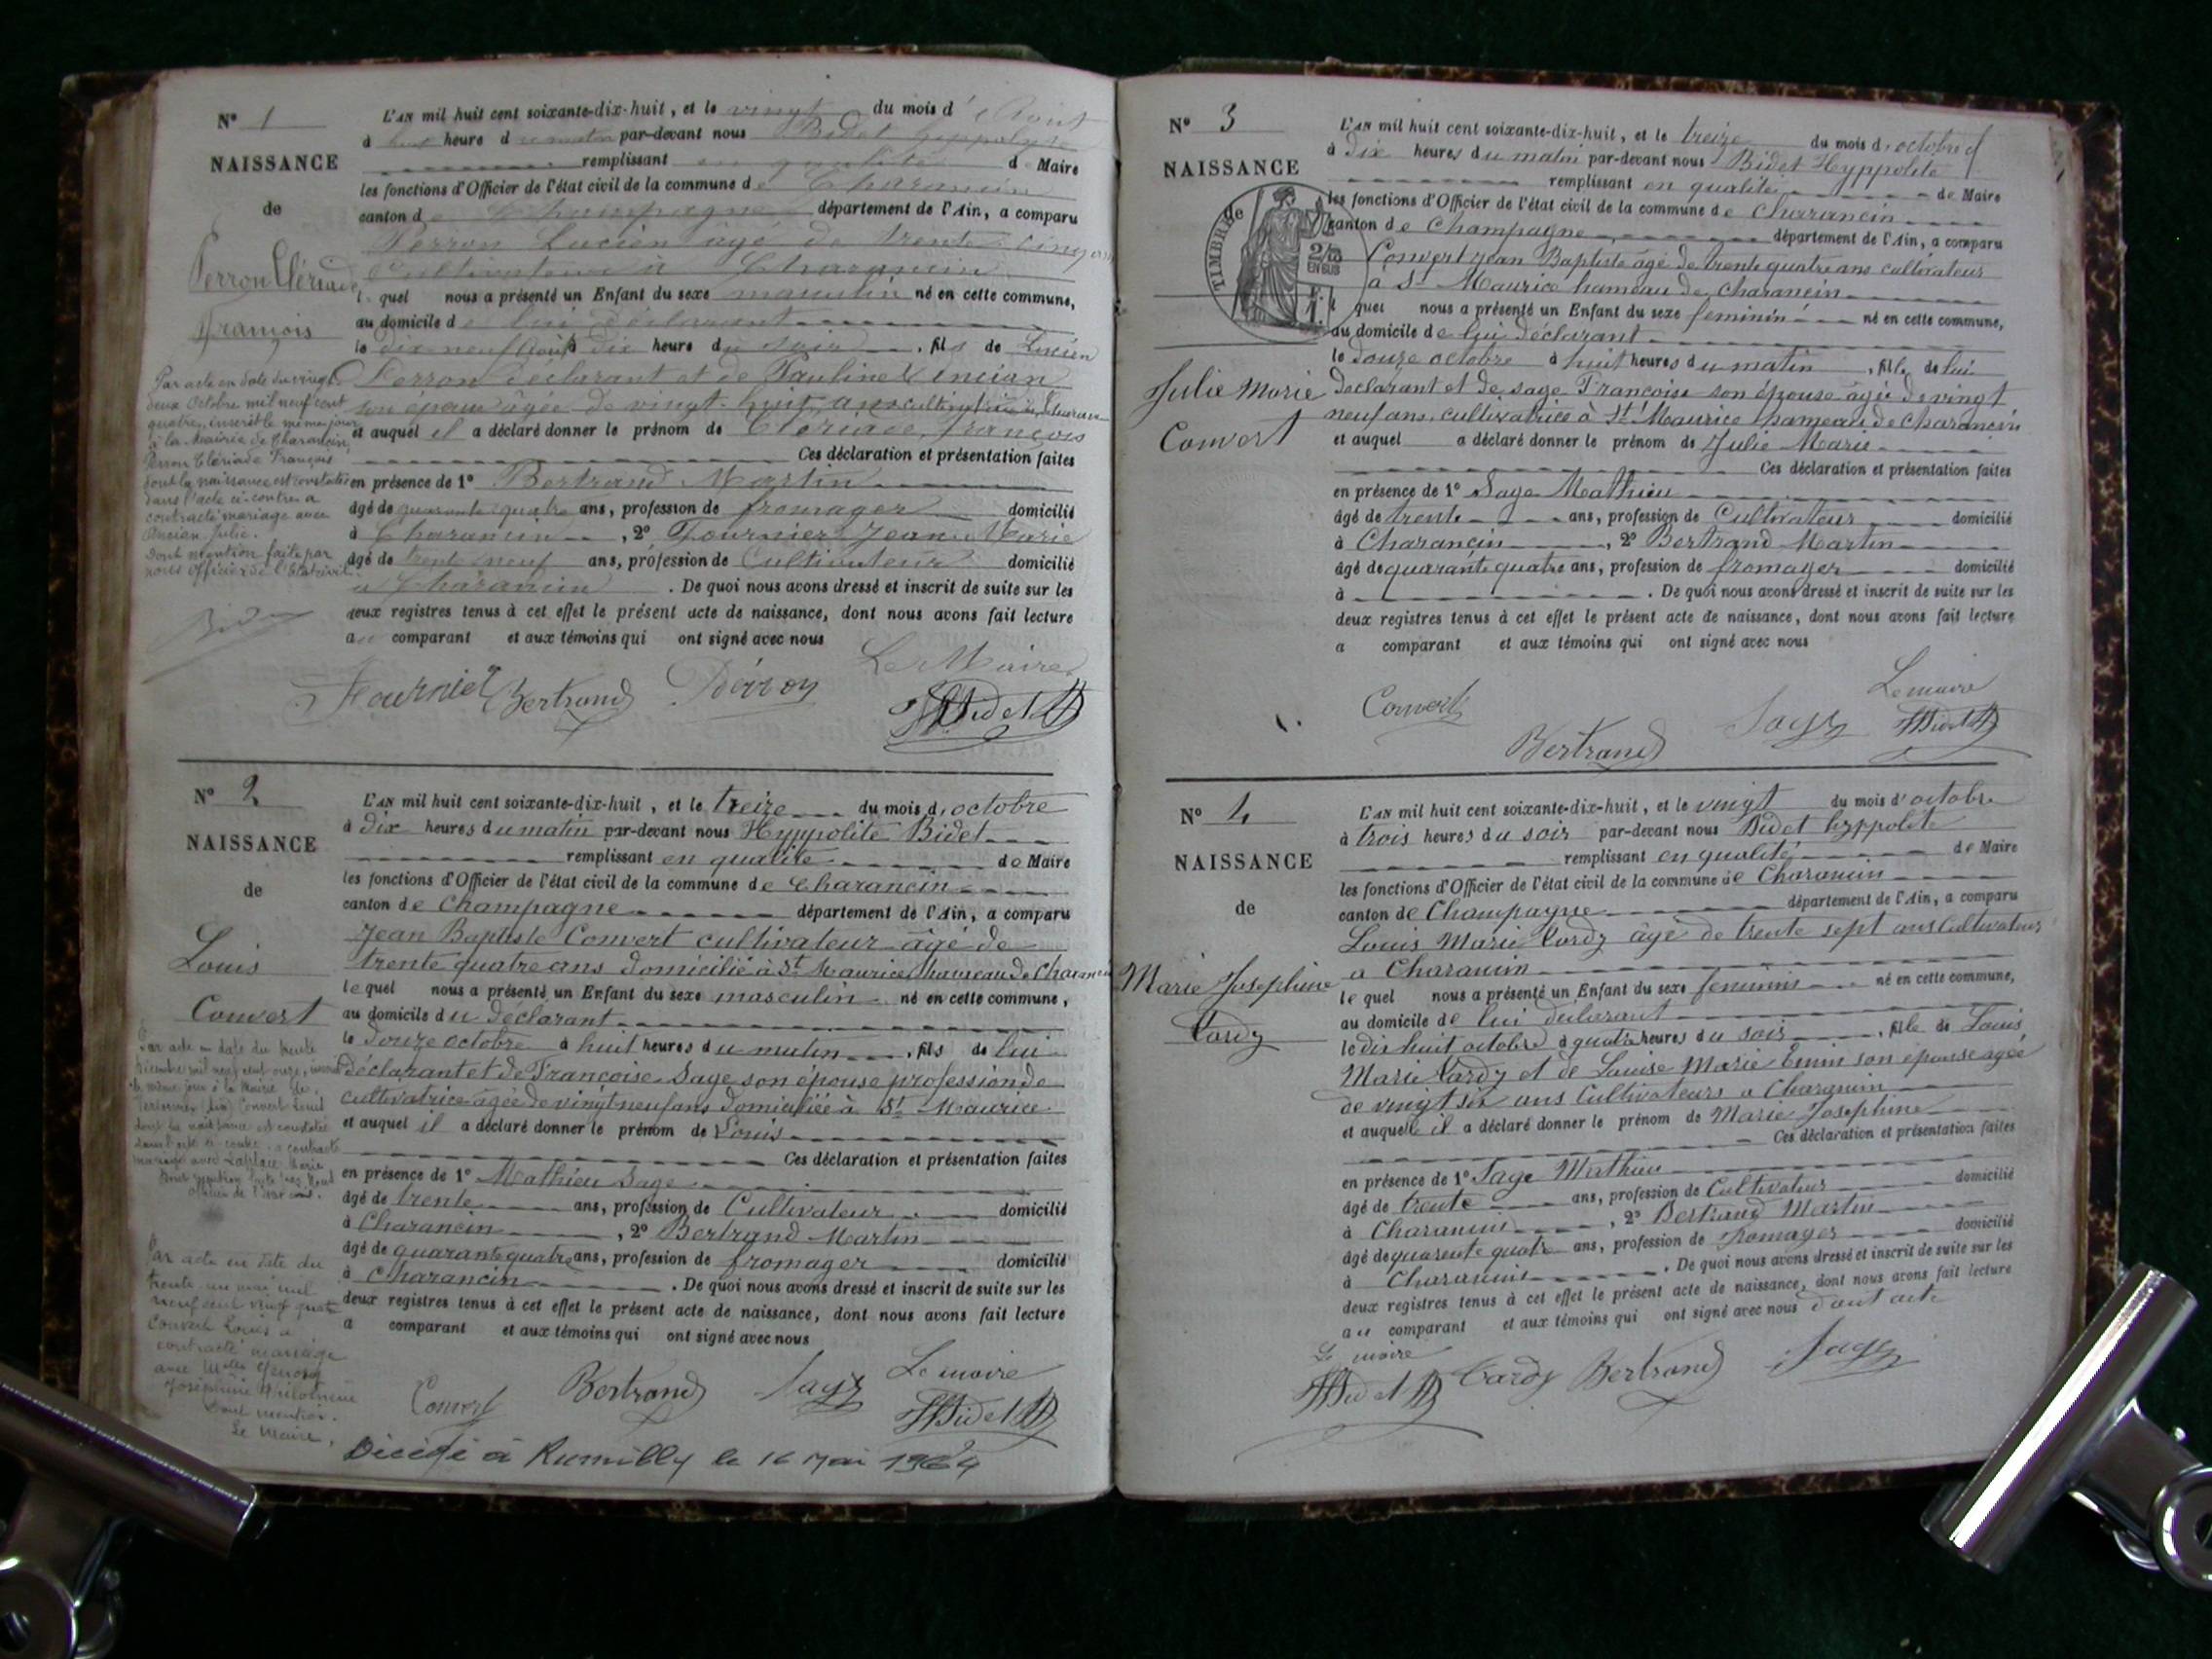 N° 1
NAISSANCE
de
Perron Clériade
François
Par acte en date du vingt
deux Octobre mil neuf cent
quatre, inscrit le même jour
à la Mairie de Charancin,
Perron Clériade François
dont la naissance est constatée
dans l'acte ci-contre a
contracté mariage avec
Ancian Julie.
Dont mention faite par
nous Officier de l'Etat civil
L'AN mil huit cent soixante-dix-huit, et le vingt du mois d'Août
à heure du matin par-devant nous Bidet Hyppolyte
remplissant en qualité de Maire
les fonctions d'Officier de l'état civil de la commune de Charancin
canton de Champagne département de l'Ain, a comparu
Perron Lucien âgé de trente cinq ans
Cultivateur à Charancin
lequel nous a présenté un Enfant du sexe masculin né en cette commune,
au domicile de lui déclarant
le dix neuf Août à dix heure du soir, fils de Lucien
Perron déclarant et de Pauline Ancian
son épouse âgée de vingt-huit ans
et auquel il a déclaré donner le prénom de Clériade, François
Ces déclaration et présentation faites
en présence de 1° Bertrand Martin
âgé de quarante quatre ans, profession de fromager domicilié
à Charancin, 2° Fournier Jean Marie
âgé de trente neuf ans, profession de Cultivateur domicilié
à Charancin. De quoi nous avons dressé et inscrit de suite sur les
deux registres tenus à cet effet le présent acte de naissance, dont nous avons fait lecture
au comparant et aux témoins qui ont signé avec nous
Le Maire
Fournier Bertrand Perron HBidet
N° 2
NAISSANCE
de
Louis
Convert
Par acte en date du trente
même jour à la Mairie de
Convert Louis
dont la naissance est constatée
dans l'acte ci-contre a contracté
mariage avec Marie
Par acte en date du
trente un mai mil
neuf cent vingt quatre
Convert Louis a
contracté mariage
avec
Joséphine Philomène
Dont mention.
Le Maire,
L'AN mil huit cent soixante-dix-huit, et le treize du mois d'octobre
à dix heures du matin par-devant nous Hyppolite Bidet
remplissant en qualité de Maire
les fonctions d'Officier de l'état civil de la commune de Charancin
canton de Champagne département de l'Ain, a comparu
Jean Baptiste Convert cultivateur âgé de
trente quatre ans domicilié à St Maurice hameau de Charancin
lequel nous a présenté un Enfant du sexe masculin né en cette commune,
au domicile du déclarant
le douze octobre à huit heures du matin, fils de lui
déclarant et de Françoise Sage son épouse profession de
cultivatrice âgée de vingt neuf ans domiciliée à St Maurice
et auquel il a déclaré donner le prénom de Louis
Ces déclaration et présentation faites
en présence de 1° Mathieu Sage
âgé de trente ans, profession de Cultivateur domicilié
à Charancin, 2° Bertrand Martin
âgé de quarante quatre ans, profession de fromager domicilié
à Charancin. De quoi nous avons dressé et inscrit de suite sur les
deux registres tenus à cet effet le présent acte de naissance, dont nous avons fait lecture
a comparant et aux témoins qui ont signé avec nous
Le maire
Convert Bertrand Sage HBidet
Décédé à Rumilly le 16 Mai 1964
N° 3
NAISSANCE
de
TIMBRE
2/10
EN SUS
Julie Marie
Convert
L'AN mil huit cent soixante-dix-huit, et le treize du mois d'octobre
à dix heures du matin par-devant nous Bidet Hyppolite
remplissant en qualité de Maire
les fonctions d'Officier de l'état civil de la commune de Charancin
canton de Champagne département de l'Ain, a comparu
Convert Jean Baptiste âgé de trente quatre ans cultivateur
à St Maurice hameau de Charancin
lequel nous a présenté un Enfant du sexe féminin né en cette commune,
au domicile de lui déclarant
le douze octobre à huit heures du matin, fille de lui
déclarant et de Sage Françoise son épouse âgée de vingt
neuf ans, cultivatrice à St Maurice hameau de Charancin
et auquel a déclaré donner le prénom de Julie Marie
Ces déclaration et présentation faites
en présence de 1° Sage Mathieu
âgé de trente ans, profession de Cultivateur domicilié
à Charancin, 2° Bertrand Martin
âgé de quarante quatre ans, profession de fromager domicilié
à . De quoi nous avons dressé et inscrit de suite sur les
deux registres tenus à cet effet le présent acte de naissance, dont nous avons fait lecture
a comparant et aux témoins qui ont signé avec nous
Le maire
Convert Bertrand Sage HBidet
N° 4
NAISSANCE
de
Marie Joséphine
Tardy
L'AN mil huit cent soixante-dix-huit, et le vingt du mois d'octobre
à trois heures du soir par-devant nous Bidet hyppolite
remplissant en qualité de Maire
les fonctions d'Officier de l'état civil de la commune de Charancin
canton de Champagne département de l'Ain, a comparu
Louis Marie Tardy âgé de trente sept ans Cultivateur
a Charancin
lequel nous a présenté un Enfant du sexe feminin né en cette commune,
au domicile de lui déclarant
le dix huit octobre à quatre heures du soir, fille de Louis
Marie Tardy et de Louise Marie Emin son épouse agée
de vingt six ans Cultivateurs a Charancin
et auquelle il a déclaré donner le prénom de Marie Joséphine
Ces déclaration et présentation faites
en présence de 1° Sage Mathieu
âgé de trente ans, profession de Cultivateur domicilié
à Charancin, 2° Bertrand Martin
âgé de quarente quatre ans, profession de fromager domicilié
à Charancin. De quoi nous avons dressé et inscrit de suite sur les
deux registres tenus à cet effet le présent acte de naissance, dont nous avons fait lecture
au comparant et aux témoins qui ont signé avec nous dont acte
Le maire
HBidet Tardy Bertrand Sage